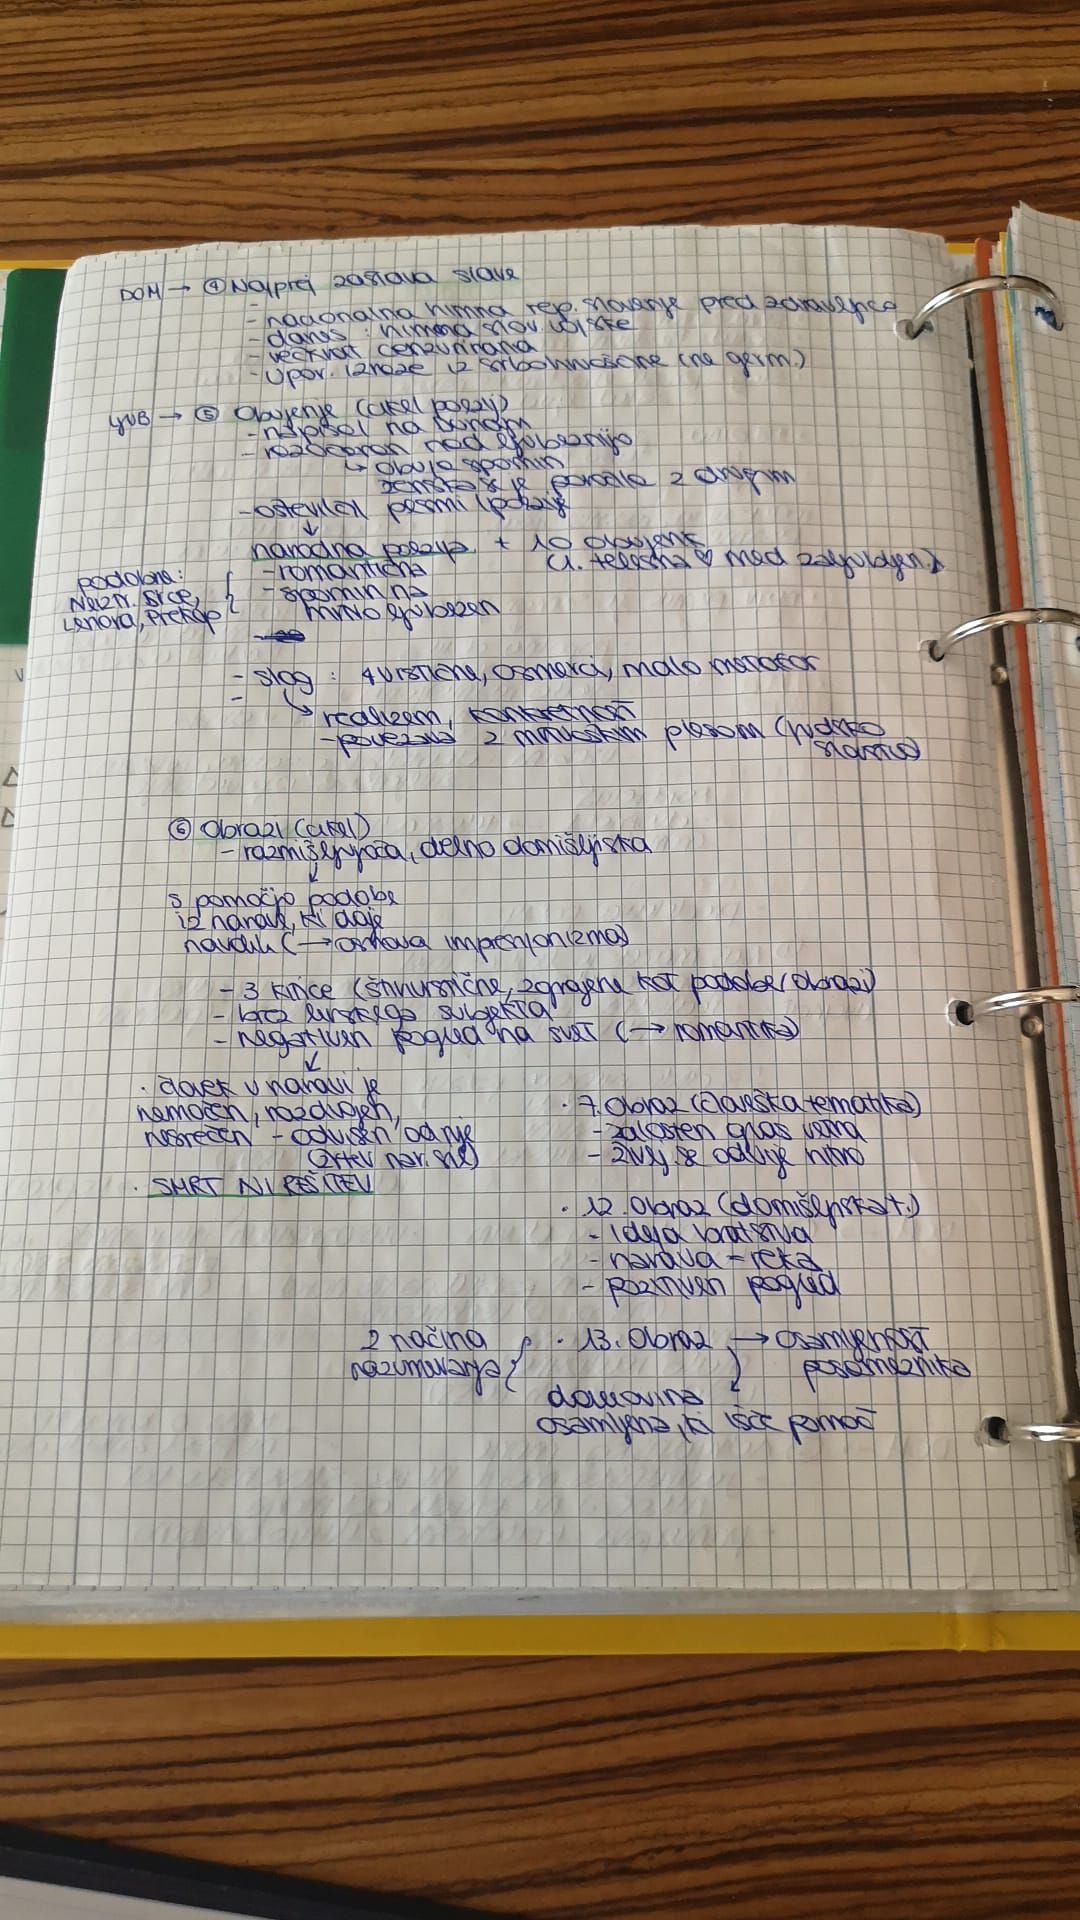 DOM → ④ Naprej zastava slave
- nacionalna himna rep. Slovenije pred zdravljico
- danes: himna slov. vojske
- večkrat cenzurirana
- upor. izraze iz srbohrvaščine (ne germ.)
LJUB → ⑤ Obujenke (cikel pesmi)
- napisal na Dunaju
- razočaran nad ljubeznijo
↳ obuja spomin
ženska se je poročila z drugim
- oštevilčil pesmi
↓
narodna poezija + 10 obujenk
- romantična (1. telesna ♡ med zaljubljen.)
podobna:
Nezn. srce,
Lenora, Prekop
- spomin na
mrtvo ljubezen
- slog: 4vrstične, osmerci, malo metafor
-
↳ realizem, konkretnost
- povezava z mrtvaškim plesom (ljudsko
slovstvo)
⑥ Obrazi (cikel)
- razmišljujoča, delno domišljijska
↓
s pomočjo podobe
iz narave, ki daje
navdih (→ osnova impresionizma)
- 3 kitice (štirivrstične, zgrajene kot podobe/obrazi)
- brez lirskega subjekta
- negativen pogled na svet (→ romantika)
↓
· človek v naravi je
nemočen, razdvojen,
nesrečen - odvisen od nje
(žrtev nar. sil)
· SMRT NI REŠITEV
· 7. Obraz (človeška tematika)
- žalosten glas vetra
- življ. se odvije hitro
· 12. Obraz (domišljijska t.)
- ideja bratstva
- narava - reka
- pozitiven pogled
2 načina
razumevanja
· 13. Obraz → osamljenost
posameznika
domovina
osamljena, ki išče pomoč